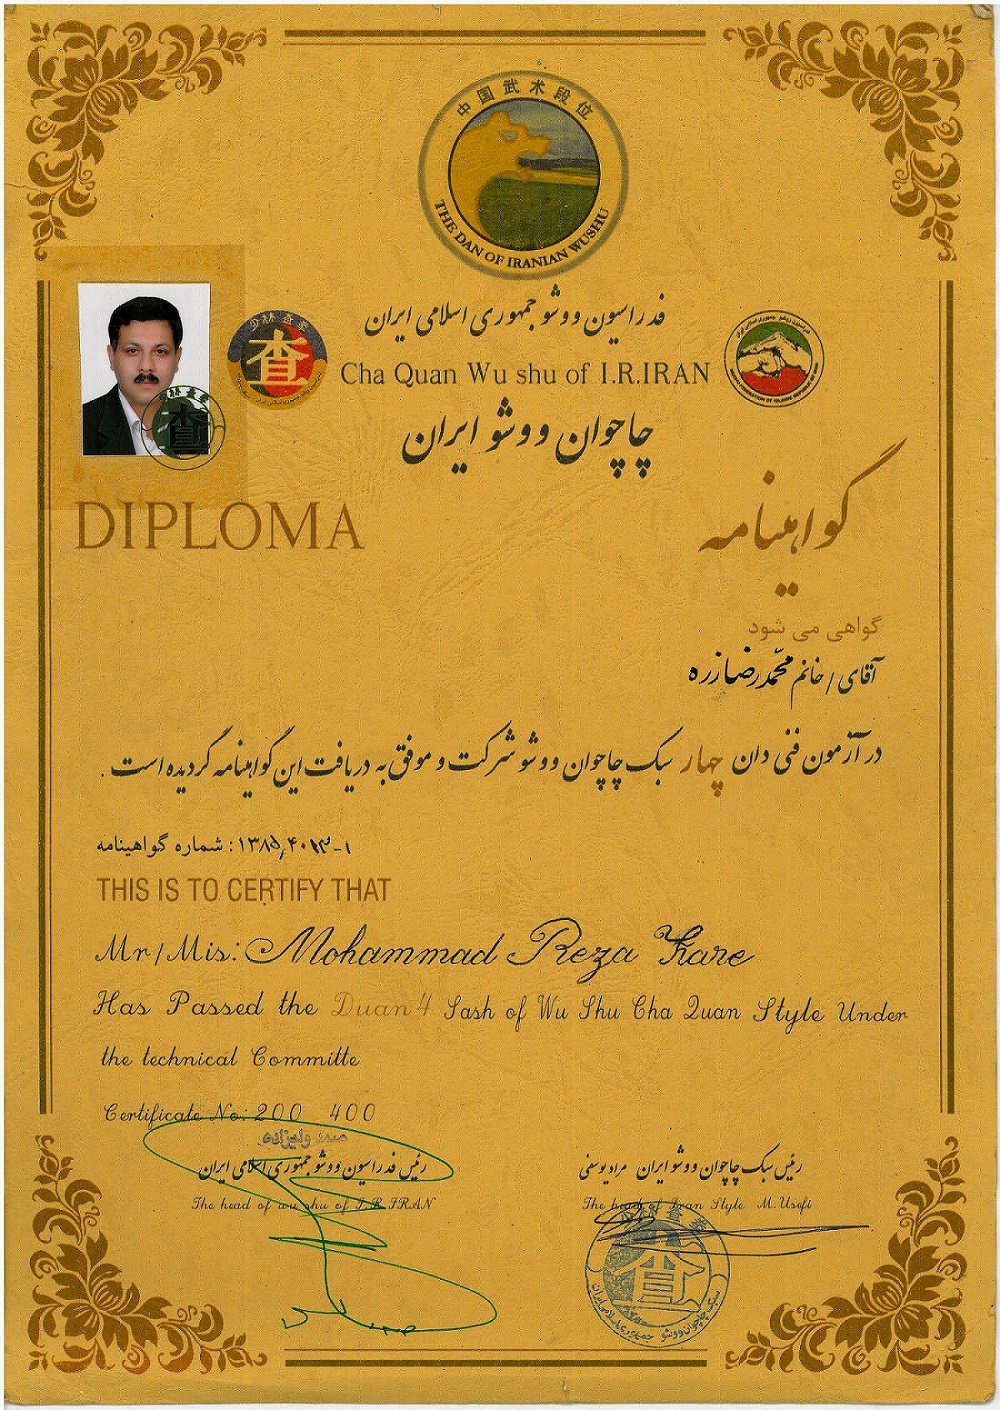 中国武术段位
THE DAN OF IRANIAN WUSHU
فدراسیون ووشو جمهوری اسلامی ایران
少林查拳
查
Cha Quan Wu shu of I.R.IRAN
چاچوان ووشو ایران
DIPLOMA
گواهینامه
گواهی می شود
آقای / خانم محمّدرضا زره
در آزمون فنی دان چهار سبک چاچوان ووشو شرکت و موفق به دریافت این گواهینامه گردیده است .
شماره گواهینامه :
THIS IS TO CERTIFY THAT
Mr/Mis: Mohammad Reza Zare
Has Passed the Duan 4 Sash of Wu Shu Cha Quan Style Under
the technical Committe
Certificate No: 200 400
صمد ولیزاده
رئیس فدراسیون ووشو جمهوری اسلامی ایران
The head of wu shu of I.R.IRAN
رئیس سبک چاچوان ووشو ایران مراد یوسفی
The head of Iran Style M.Usefi
查
سبک چاچوان ووشو جمهوری اسلامی ایران